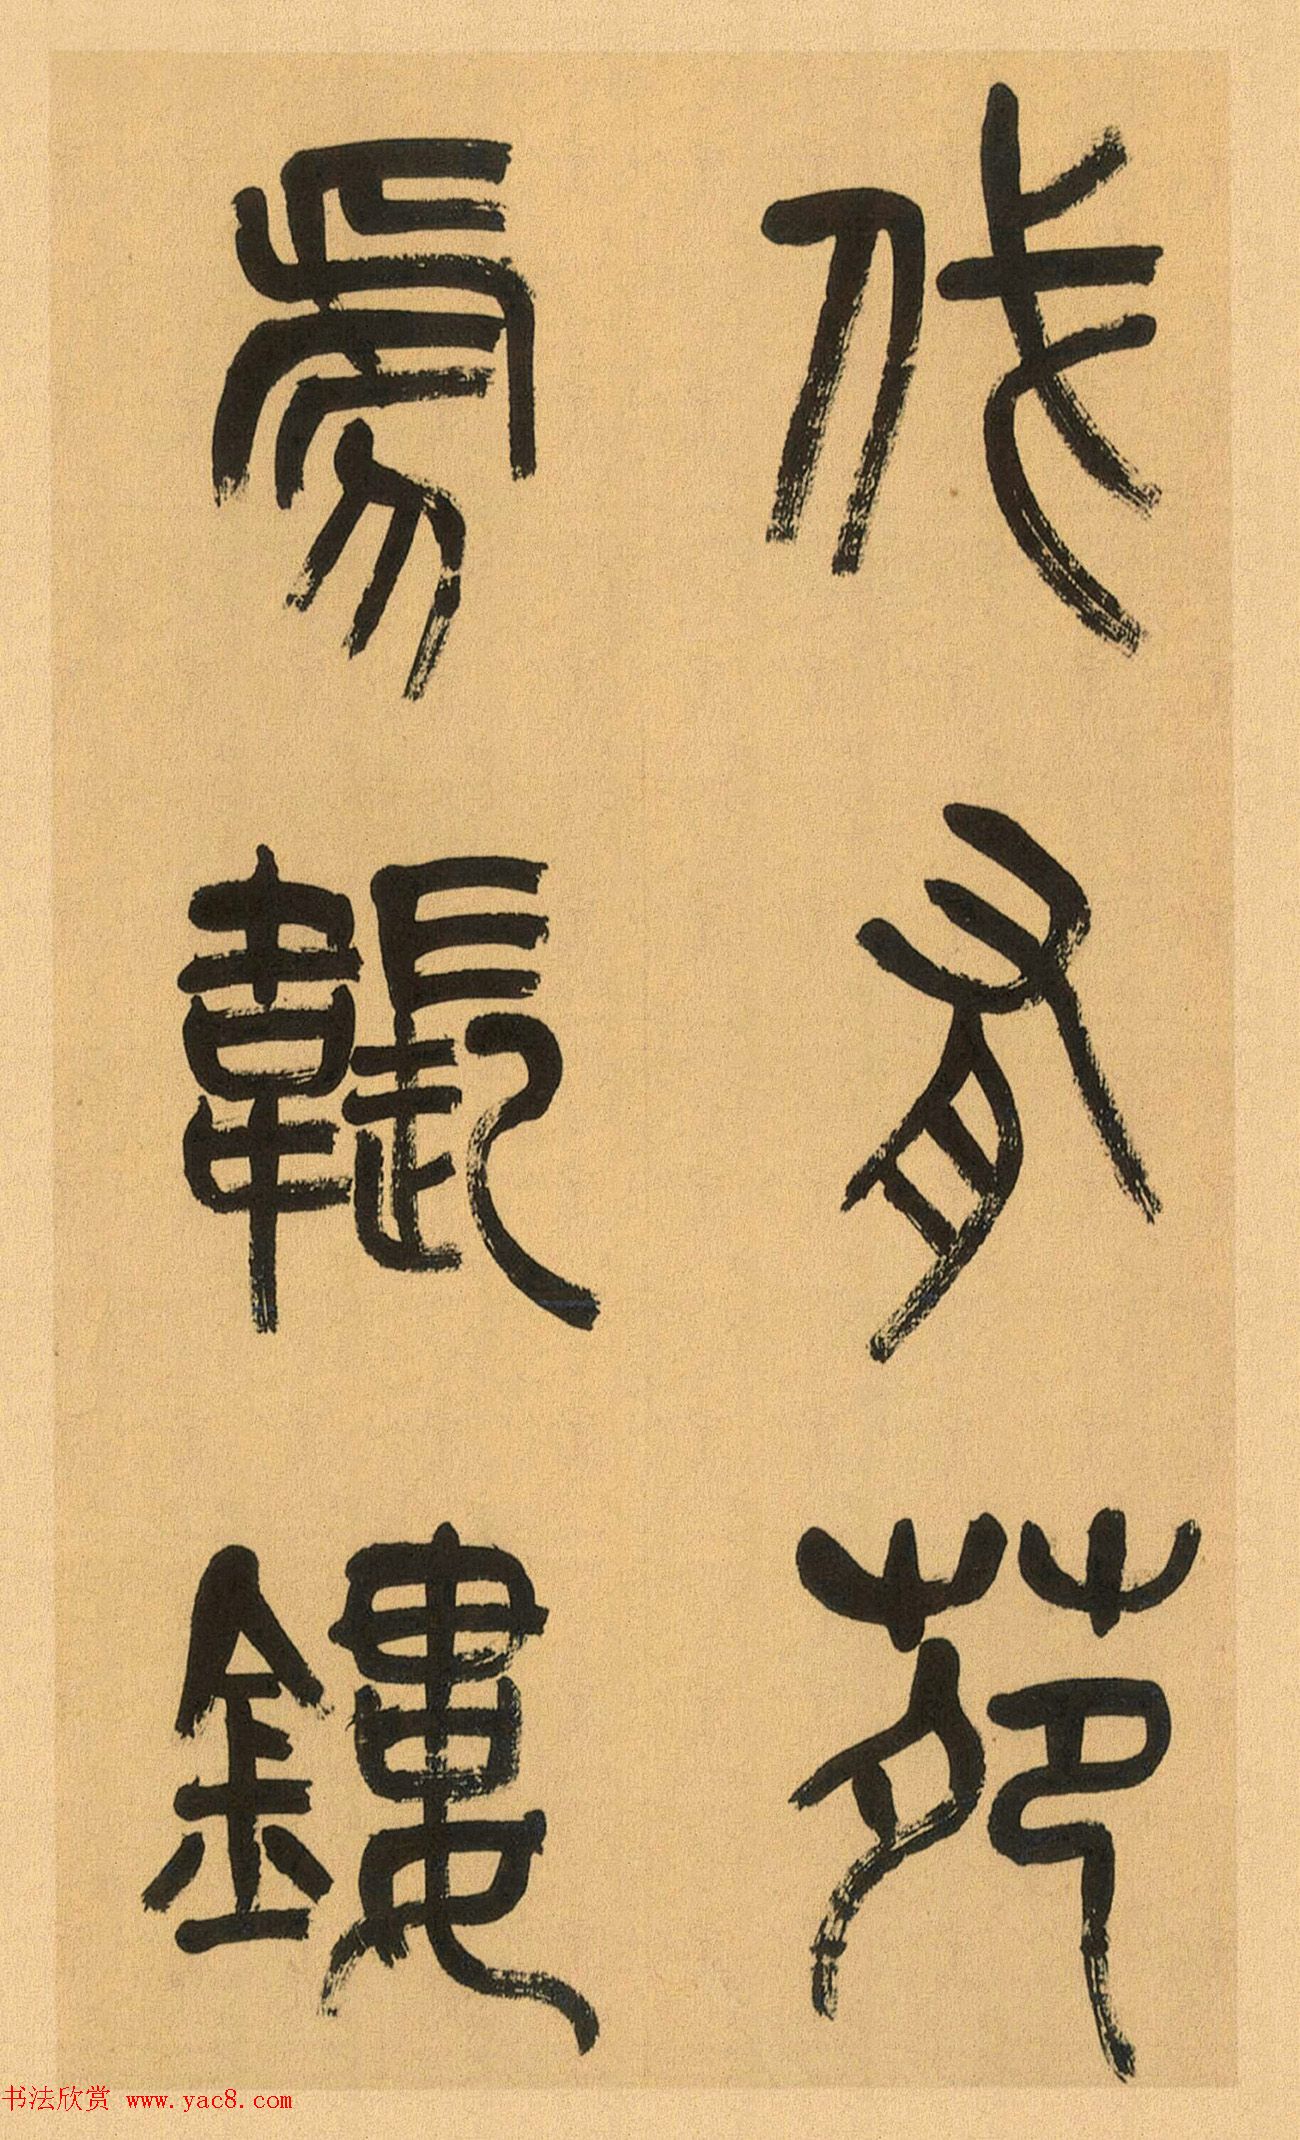 伐有苑
虎韔鏤
书法欣赏 www.yac8.com